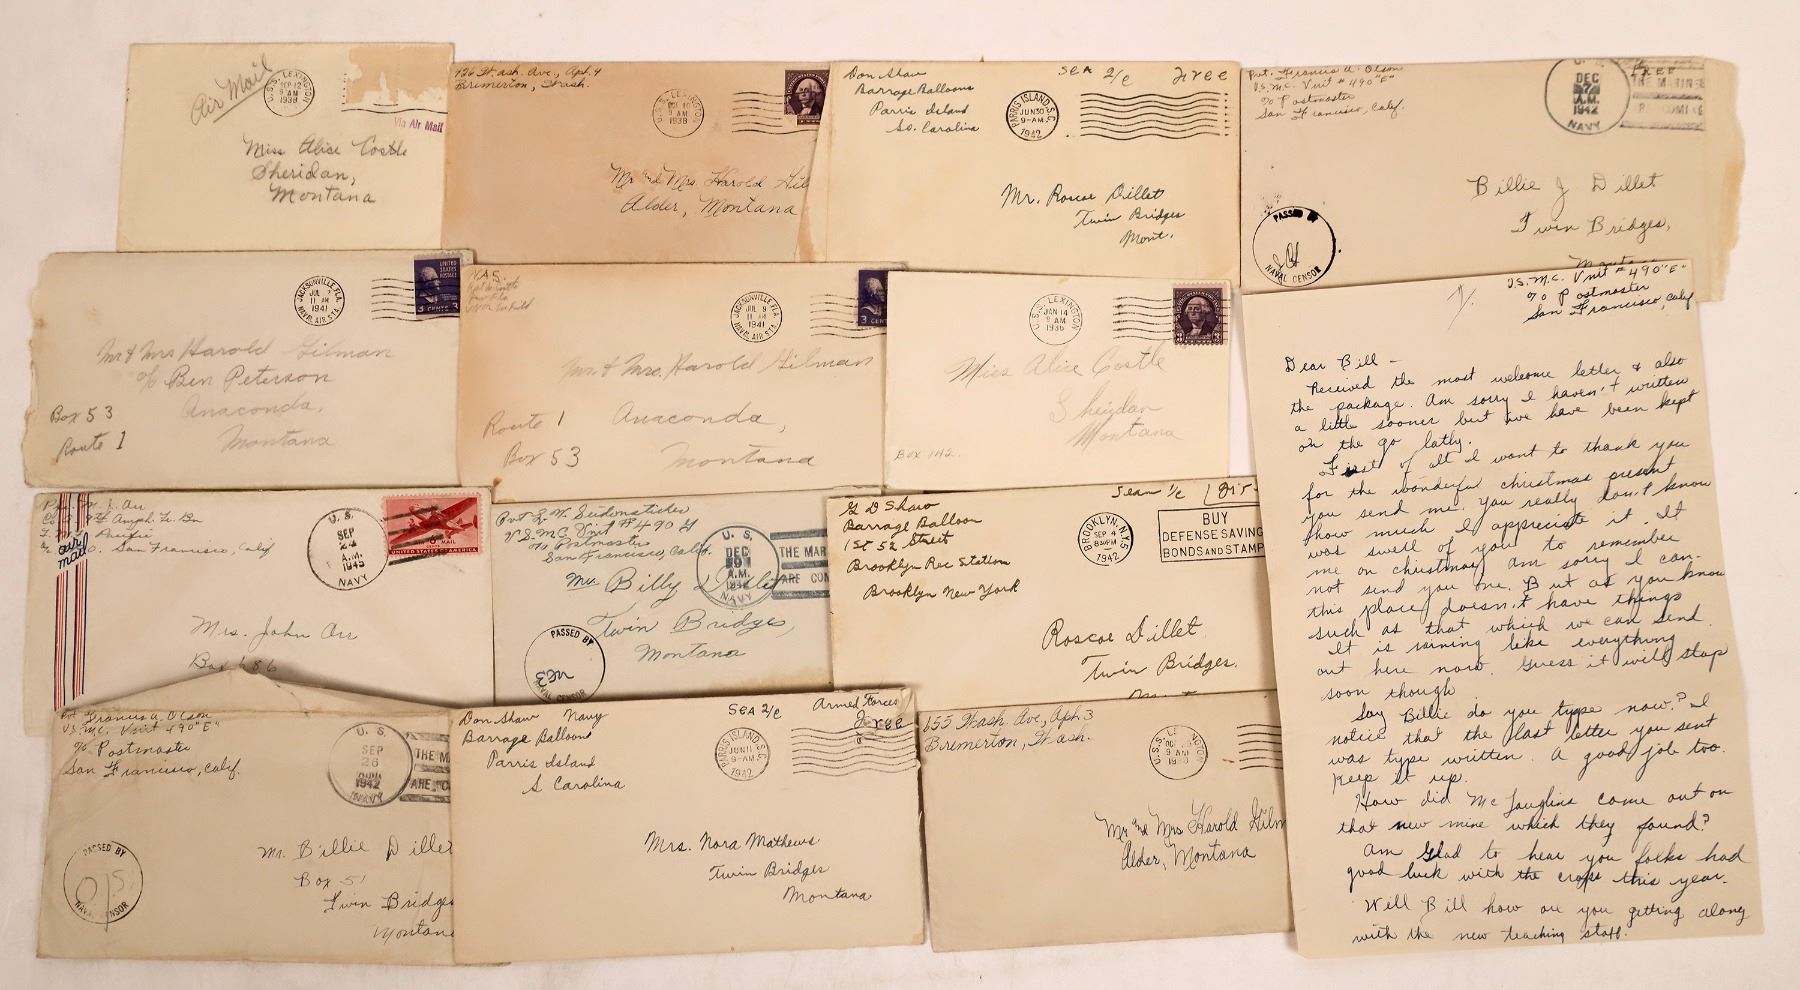 Air Mail
U.S.S. LEXINGTON
SEP 12
9 AM
1938
Via Air Mail
Miss Alice Costle
Sheridan,
Montana
Wash. Ave., Apt. 4
Bremerton, Wash.
U.S.S. LEXINGTON
9 AM
1938
Mr and Mrs. Harold Gil
Alder, Montana
Don Shaw
Barrage Balloons
Parris Island
So. Carolina
SEA 2/c Free
PARRIS ISLAND, S.C.
JUN 30
9-AM
1942
Mr. Roscoe Dillet
Twin Bridges
Mont.
Pvt. Francis A. Olson
U.S.M.C. Unit #490 "E"
% Postmaster
San Francisco, Calif.
FREE
DEC
A.M.
1942
NAVY
THE MARINES
PASSED BY
NAVAL CENSOR
Billie J Dillet
Twin Bridges,
JACKSONVILLE, FLA.
JUL 7
11 AM
1941
NAVAL AIR STA.
UNITED STATES POSTAGE
3 CENTS 3
Mr & Mrs Harold Gilman
% Ben Peterson
Box 53 Anaconda,
Route 1 Montana
N.A.S.
JACKSONVILLE, FLA.
JUL 9
11 AM
1941
NAVAL AIR STA.
3 CENTS
Mr. & Mrs. Harold Gilman
Route 1 Anaconda,
Box 53 Montana
U.S.S. LEXINGTON
JAN 14
9 AM
1936
Miss Alice Costle
Sheridan
Montana
Box 142.
Pacific
San Francisco, Calif
air mail
U.S.
SEP
A.M.
1945
NAVY
UNITED STATES OF AMERICA
Mrs. John Arr
Box 686
U.S.M.C. Unit #490
% Postmaster
San Francisco, Calif.
U.S.
DEC
A.M.
NAVY
THE MAR
ARE COM
Mr Billy
Twin Bridges,
Montana
PASSED BY
NAVAL CENSOR
G D Shaw
Barrage Balloon
1st 52 Street
Brooklyn Rec Station
Brooklyn New York
Sea 1/c
BROOKLYN, N.Y.
SEP 4
8 30 PM
1942
BUY
DEFENSE SAVING
BONDS AND STAMP
Roscoe Dillet
Twin Bridges.
Pvt. Francis A. Olson
U.S.M.C. Unit 490 "E"
% Postmaster
San Francisco, Calif.
U.S.
SEP
26
1942
NAVY
THE M
ARE C
PASSED BY
NAVAL CENSOR
Mr. Billie Dillet
Box 51
Twin Bridges
Montana
Don Shaw Navy
Barrage Balloons
Parris Island
S Carolina
SEA 2/c
Armed Forces
Free
PARRIS ISLAND, S.C.
JUN 11
9-AM
1942
Mrs. Nora Mathews
Twin Bridges
Montana
655 Wash. Ave., Apt. 3
Bremerton, Wash.
U.S.S. LEXINGTON
9 AM
Mr and Mrs Harold Gilm
Alder, Montana
U.S.M.C. Unit #490 "E"
% Postmaster
San Francisco, Calif
Dear Bill –
Received the most welcome letter & also
the package. Am sorry I haven't written
a little sooner but we have been kept
on the go latly.
First of all I want to thank you
for the wonderful christmas present
you send me. You really don't know
how much I appreciate it. It
was swell of you to remember
me on christmas, am sorry I can-
not send you one. But as you know
this place doesn't have things
such as that which we can send.
It is raining like everything
out here now. Guess it will stop
soon though
Say Billie do you type now? I
notice that the last letter you sent
was type written. A good job too.
Keep it up.
How did Mc Lauglins come out on
that new mine which they found?
Am Glad to hear you folks had
good luck with the crops this year.
Well Bill how are you getting along
with the new teaching staff.